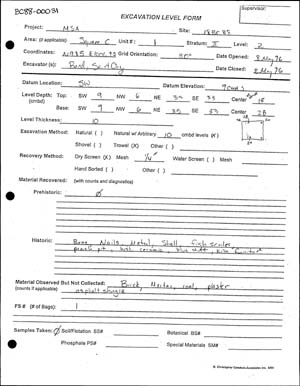 BC88-00031
EXCAVATION LEVEL FORM
Supervisor:
Project: MSA
Site: 18BC85
Area: (if applicable) Square C Unit #: 1 Stratum: Level: 2
Coordinates: Grid Orientation: Date Opened: May 96
Excavator (s): Date Closed: May 96
Datum Location: SW Datum Elevation:
Level Depth: Top: SW 9 NW 6 NE 35 SE 33 Center 18
(cmbd) Base: SW 9 NW 6 NE 35 SE 33 Center 28
Level Thickness: 10
Excavation Method: Natural ( ) Natural w/ Arbitrary 10 cmbd levels (X)
Shovel ( ) Trowel (X) Other ( )
Recovery Method: Dry Screen (X) Mesh 1/4" Water Screen ( ) Mesh
Hand Sorted ( ) Other ( )
Material Recovered: (with counts and diagnostics)
Prehistoric: Ø
Historic: Bone, Nails, Metal, Shell, fish scales,
peach pit,
Material Observed But Not Collected: Brick, Mortar, coal, plaster
(counts if applicable) asphalt shingle
FS # (# of Bags): 1
Samples Taken: Soil/Flotation SS# Botanical BS#
Phosphate PS# Special Materials SM#